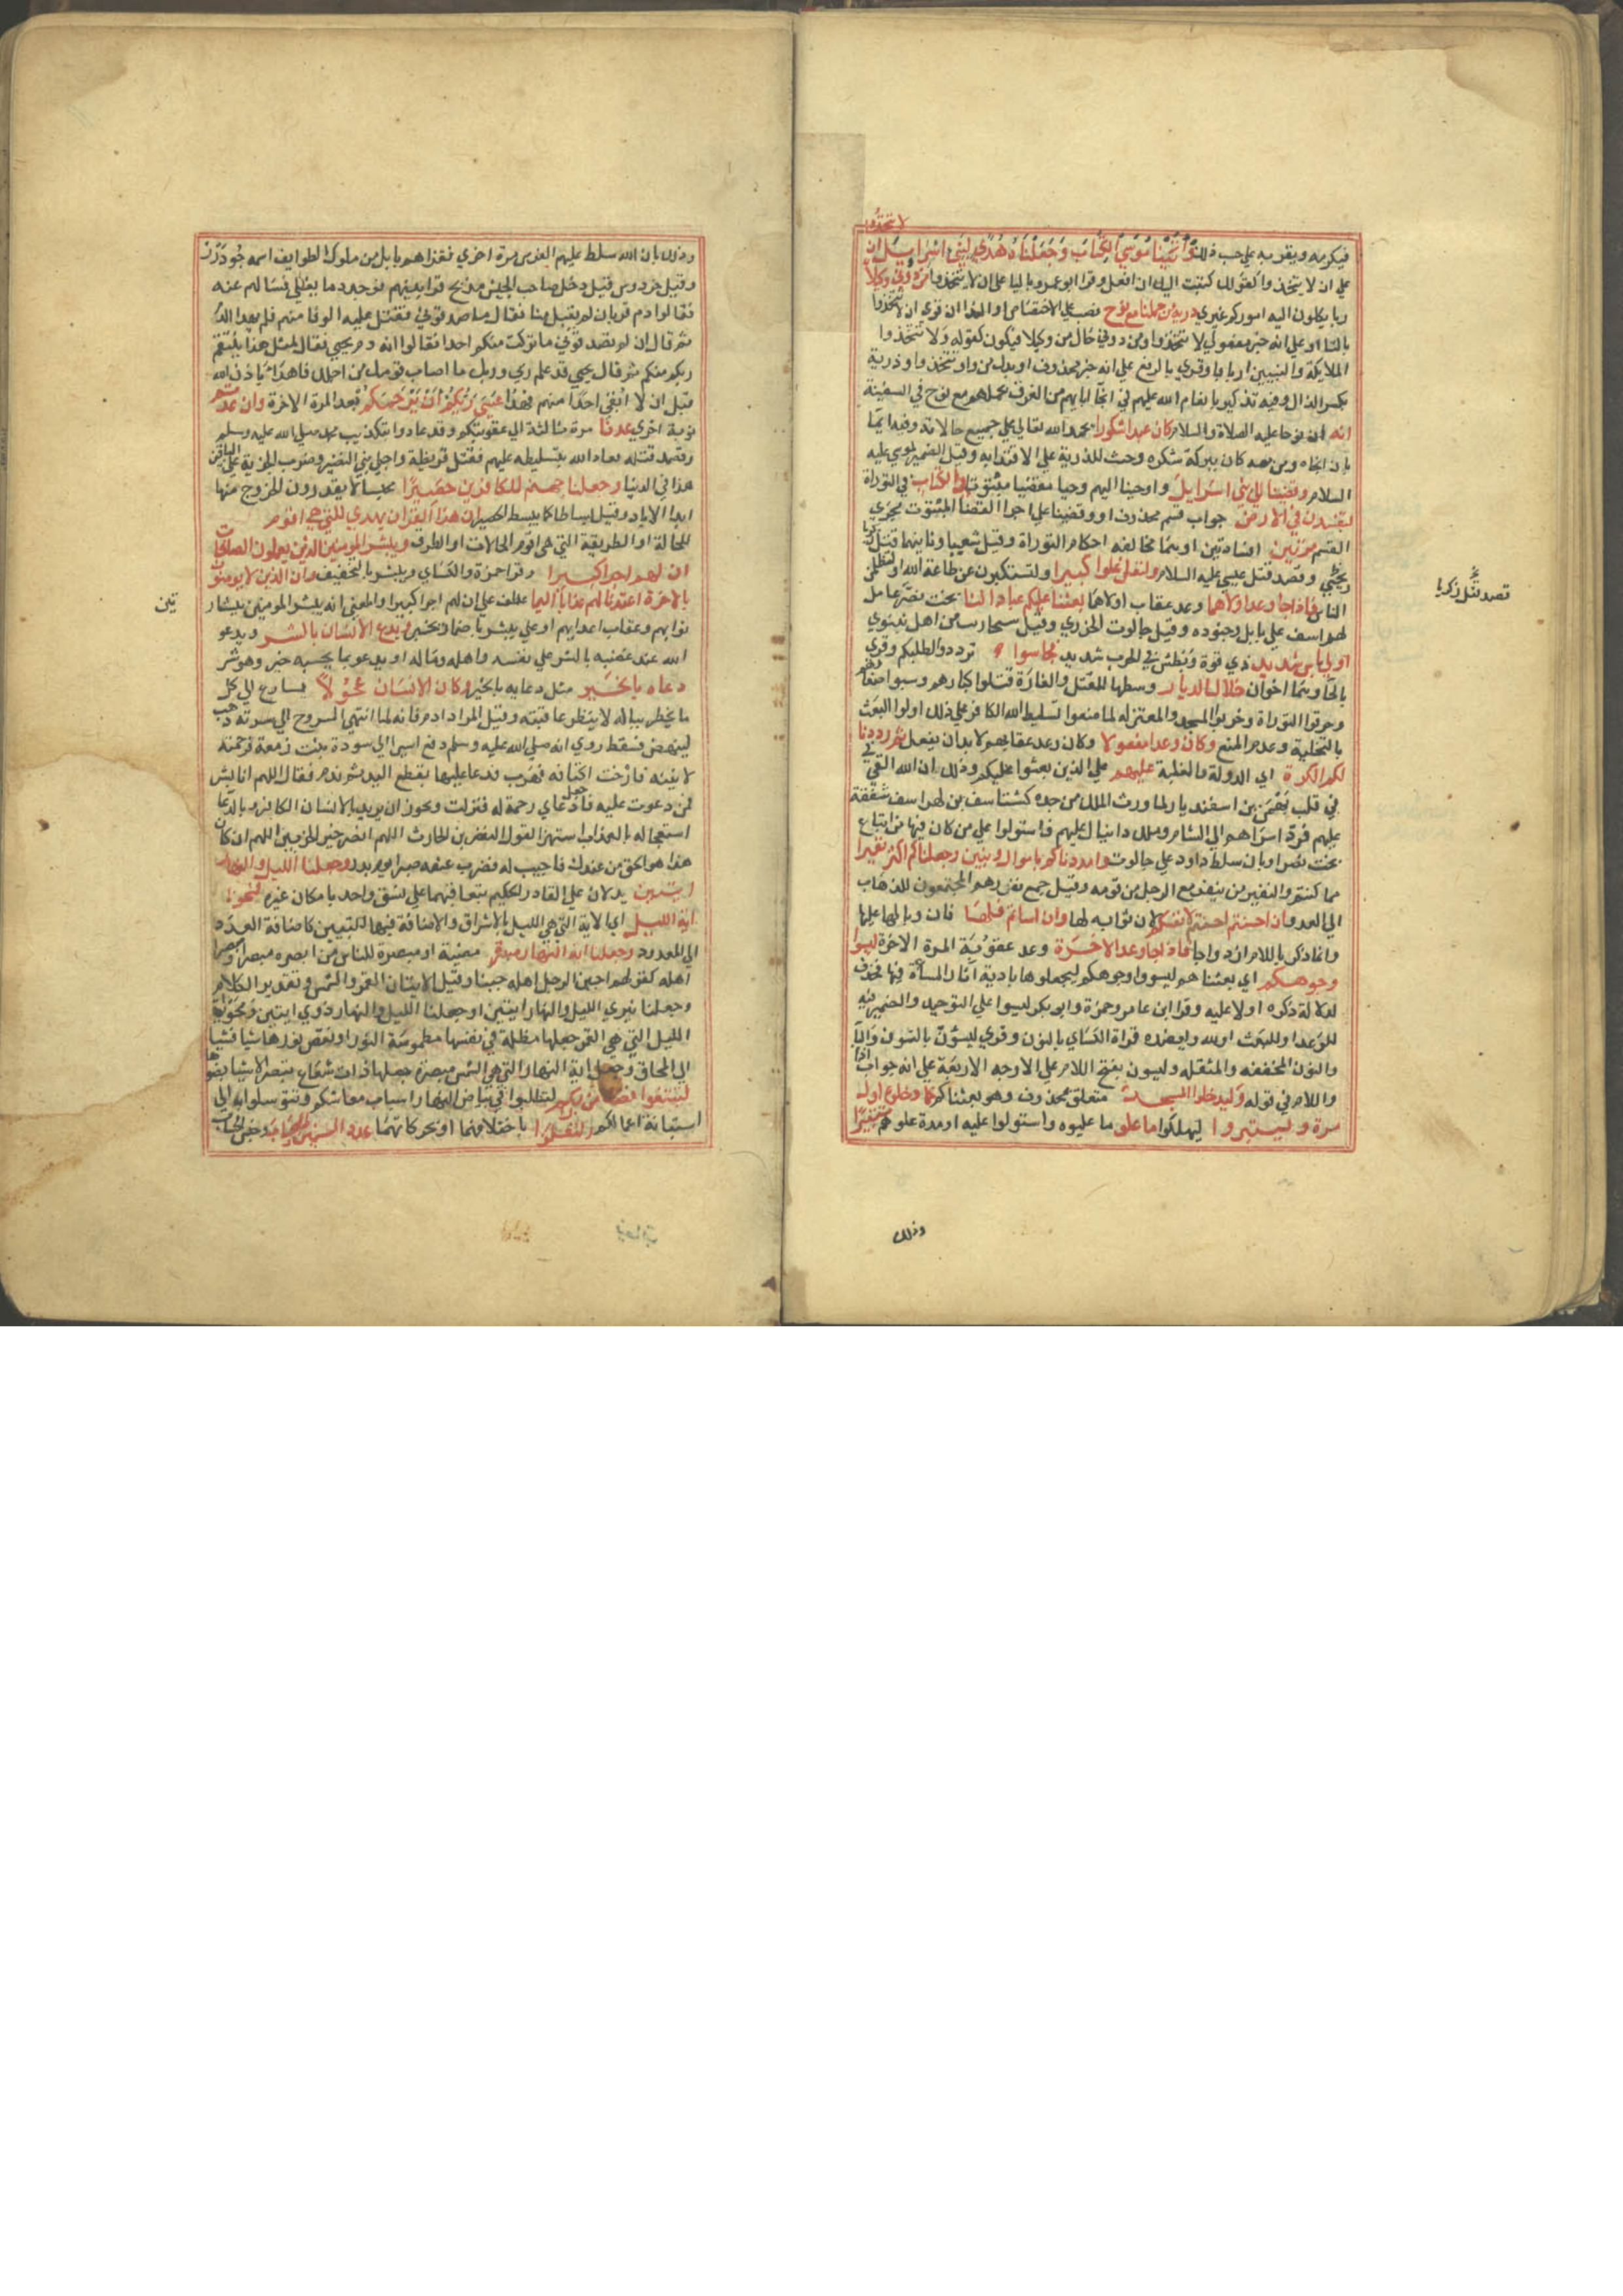 لا تتخذوا
فيكرمه ويقربه على حسب ذلك وأتينا موسى الكتاب وجعلناه هدى لبني اسرايل ان
على ان لا يتخذوا كقولك كتبت اليك ان افعل وقرا ابو عمرو باليا على ان لا يتخذوا من دوني وكيلا
ربا يكلون اليه اموركم غيري ذرية من حملنا مع نوح نصب على الاختصاص او الندا ان قري ان لا تتخذوا
بالتا او على انه احد مفعولي لا تتخذوا ومن دوني حال من وكيلا فيكون كقوله ولا تتخذوا
الملايكة والنبيين اربابا وقري بالرفع على انه خبر محذوف او بدل من واو تتخذوا وذرية
بكسر الذال وفيه تذكير بانعام الله عليهم في انجا ابايهم من الغرق بحملهم مع نوح في السفينة
انه ان نوحا عليه الصلاة والسلام كان عبدا شكورا يحمد الله تعالى على جميع حالاته وفيه ايما
بان انجاه ومن معه كان ببركة شكره وحث للذرية على الاقتدا به وقيل الضمير لموسي عليه
السلام وقضينا الي بني اسرايل واوحينا اليهم وحيا مقضيا مبثوتا في الكتاب في التوراة
لتفسدن في الارض جواب قسم محذوف او وقضينا على اجرا القضا المبثوت مجري
القسم مرتين افسادتين اوليهما مخالفة احكام التوراة وقتل شعيا وثانيهما قتل زكريا
ويحيي وقصد قتل عيسي عليه السلام ولتعلن علوا كبيرا ولتستكبرون عن طاعة الله او لتظلمن
الناس فاذا جا وعد اولاهما وعد عقاب اولاهما بعثنا عليكم عبادا لنا بخت نصر عامل
لهراسف على بابل وجنوده وقيل جالوت الخزري وقيل سنحاريب من اهل نينوي
اولي باس شديد ذي قوة وبطش في الحرب شديد فجاسوا ترددوا لطلبكم وقري
بالحا وهما اخوان خلال الديار وسطها للقتل والغارة قتلوا كبارهم وسبوا صغارهم
وحرقوا التوراة وخربوا المسجد والمعتزلة لما منعوا تسليط الله الكافر على ذلك اولوا البعث
بالتخلية وعدم المنع وكان وعدا مفعولا وكان وعد عقابهم لا بد ان يفعل ثم رددنا
لكم الكرة اي الدولة والغلبة عليهم على الذين بعثوا عليكم وذلك ان الله القي في
في قلب بهمن بن اسفنديار لما ورث الملك من جده كشتاسف بن لهراسف شفقة
عليهم فرد اسراهم الي الشام وملك دانيال عليهم فاستولوا علي من كان فيها من اتباع
بخت نصر او بان سلط داود علي جالوت وامددناكم باموال وبنين وجعلناكم اكثر نفيرا
مما كنتم والنفير من ينفر مع الرجل من قومه وقيل جمع نفر وهم المجتمعون للذهاب
الي العدو ان احسنتم احسنتم لانفسكم لان ثوابه لها وان اساتم فلها فان وبالها عليها
وانما ذكر باللام ازدواجا فاذا جا وعد الاخرة وعد عقوبة المرة الاخرة ليسوا
وجوهكم اي بعثناهم ليسووا وجوهكم ليجعلوها بادية اثار المساة فيها فحذف
لدلالة ذكره اولا عليه وقرا ابن عامر وحمزة وابو بكر ليسوا علي التوحيد والضمير فيه
للوعد او للبعث او لله ويعضده قراة الكساي بالنون وقري ليسوؤن بالنون واليا
والنون المخففة والمثقلة وليسون بفتح اللام علي الاوجه الاربعة علي انه جواب اذا
واللام في قوله وليدخلوا المسجد متعلق بمحذوف وهو بعثناهم كما دخلوه اول
مرة وليتبروا ليهلكوا ما علو ما غلبوه واستولوا عليه او مدة علوهم تتبيرا
قصد قتل زكريا
وذلك
وذلك بان الله سلط عليهم الفرس مرة اخري فغزاهم بابل من ملوك الطوايف اسمه جودرز
وقيل خردوس قيل دخل صاحب الجيش مذبح قرابينهم فوجد دما يغلي فسالهم عنه
فقالوا دم قربان لم يقبل منا فقال ما صدقوني فقتل عليه الوفا منهم فلم يهدا الدم
ثم قال ان لم تصدقوني ما تركت منكم احدا فقالوا انه دم يحيي فقال لمثل هذا ينتقم
ربكم منكم ثم قال يحيي قد علم ربي وربك ما اصاب قومك من اجلك فاهدا باذن الله
قبل ان لا ابقي احدا منهم فهدا عسي ربكم ان يرحمكم بعد المرة الاخرة وان عدتم
نوبة اخري عدنا مرة ثالثة الي عقوبتكم وقد عادوا بتكذيب محمد صلي الله عليه وسلم
وقصد قتله فعاد الله بتسليطه عليهم فقتل قريظة واجلي بني النضير وضرب الجزية علي الباقين
هذا في الدنيا وجعلنا جهنم للكافرين حصيرا محبسا لا يقدرون الخروج منها
ابدا الاباد وقيل بساطا كما يبسط الحصير ان هذا القران يهدي للتي هي اقوم
للحالة او الطريقة التي هي اقوم الحالات او الطرف ويبشر المومنين الذين يعملون الصالحات
ان لهم اجرا كبيرا وقرا حمزة والكساي ويبشر بالتخفيف وان الذين لا يومنون
بالاخرة اعتدنا لهم عذابا اليما عطف علي ان لهم اجرا كبيرا والمعني انه يبشر المومنين ببشارتين
ثوابهم وعقاب اعدايهم او علي يبشر باضمار يخبر ويدع الانسان بالشر ويدعو
الله عند غضبه بالشر علي نفسه واهله وماله او يدعو بما يحسبه خير وهو شر
دعاه بالخير مثل دعايه بالخير وكان الانسان عجولا يسارع الي كل
ما يخطر بباله لا ينظر عاقبته وقيل المراد ادم فانه لما انتهي الروح الي سرته ذهب
لينهض فسقط روي انه صلي الله عليه وسلم دفع اسيرا الي سودة بنت زمعة فرحمته
لانينه فارخت اكتافه فهرب فدعا عليها بقطع اليد ثم ندم فقال اللهم انا بشر
فمن دعوت عليه فاجعل دعاي رحمة له فنزلت ويجوز ان يريد بالانسان الكافر وبالدعا
استعجاله بالعذاب استهزا لقول النضر بن الحارث اللهم انصر خير الحزبين اللهم ان كان
هذا هو الحق من عندك فاجيب له فضرب عنقه صبرا يوم بدر وجعلنا الليل والنهار
ايتين يدلان علي القادر الحكيم بتعاقبهما علي نسق واحد بامكان غيره فمحونا
اية الليل اي الاية التي هي الليل بالاشراق والاضافة فيها للتبيين كاضافة العدد
الي المعدود وجعلنا اية النهار مبصرة مضيئة او مبصرة للناس من ابصره مبصرا ومبصرا
اهله كقولهم اجبن الرجل اهله جبنا وقيل الايتان القمر والشمس وتقدير الكلام
وجعلنا نيري الليل والنهار ايتين او جعلنا الليل والنهار ذوي ايتين ومحو اية
الليل التي هي القمر جعلها مظلمة في نفسها مطموسة النور او نقص نورها شيا فشيا
الي المحاق وجعل اية النهار التي هي الشمس مبصرة جعلها ذات شعاع تبصر الاشيا بضوها
لتبتغوا فضلا من ربكم لتطلبوا في بياض النهار اسباب معاشكم وتتوسلوا به الي
استبانة اعمالكم ولتعلموا باختلافهما او بحركاتهما عدد السنين والحساب وجنس الحساب
تين